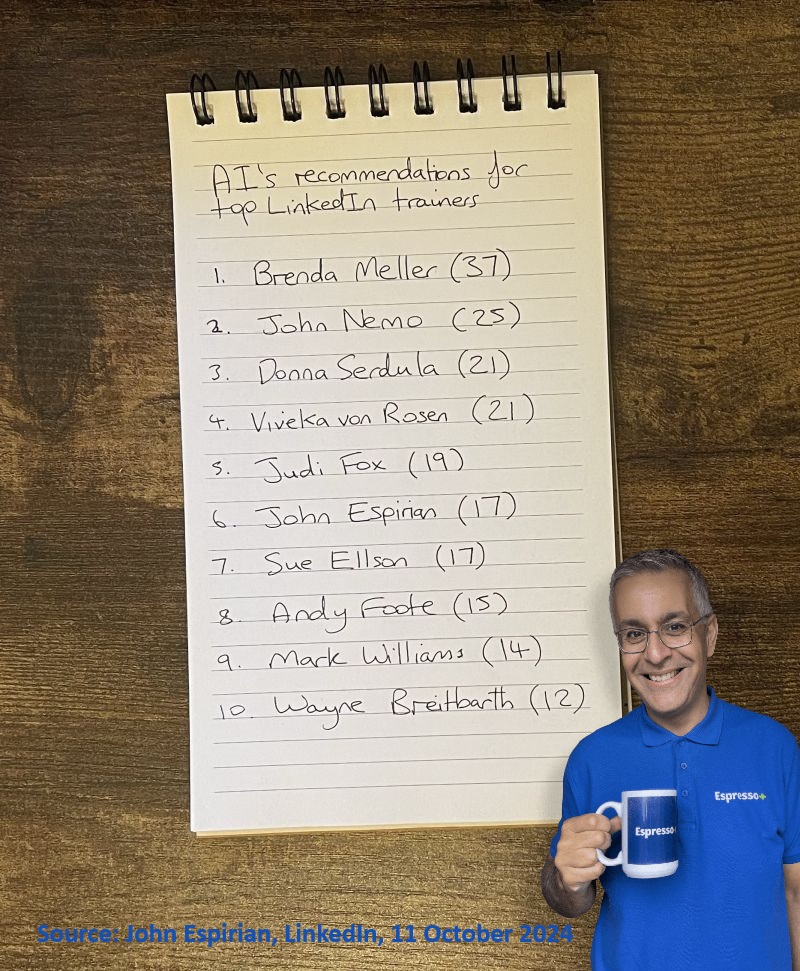 AI's recommendations for
top LinkedIn trainers
1. Brenda Meller (37)
2. John Nemo (25)
3. Donna Serdula (21)
4. Viveka von Rosen (21)
5. Judi Fox (19)
6. John Espirian (17)
7. Sue Ellson (17)
8. Andy Foote (15)
9. Mark Williams (14)
10. Wayne Breitbarth (12)
Espresso+
Espresso
Source: John Espirian, LinkedIn, 11 October 2024